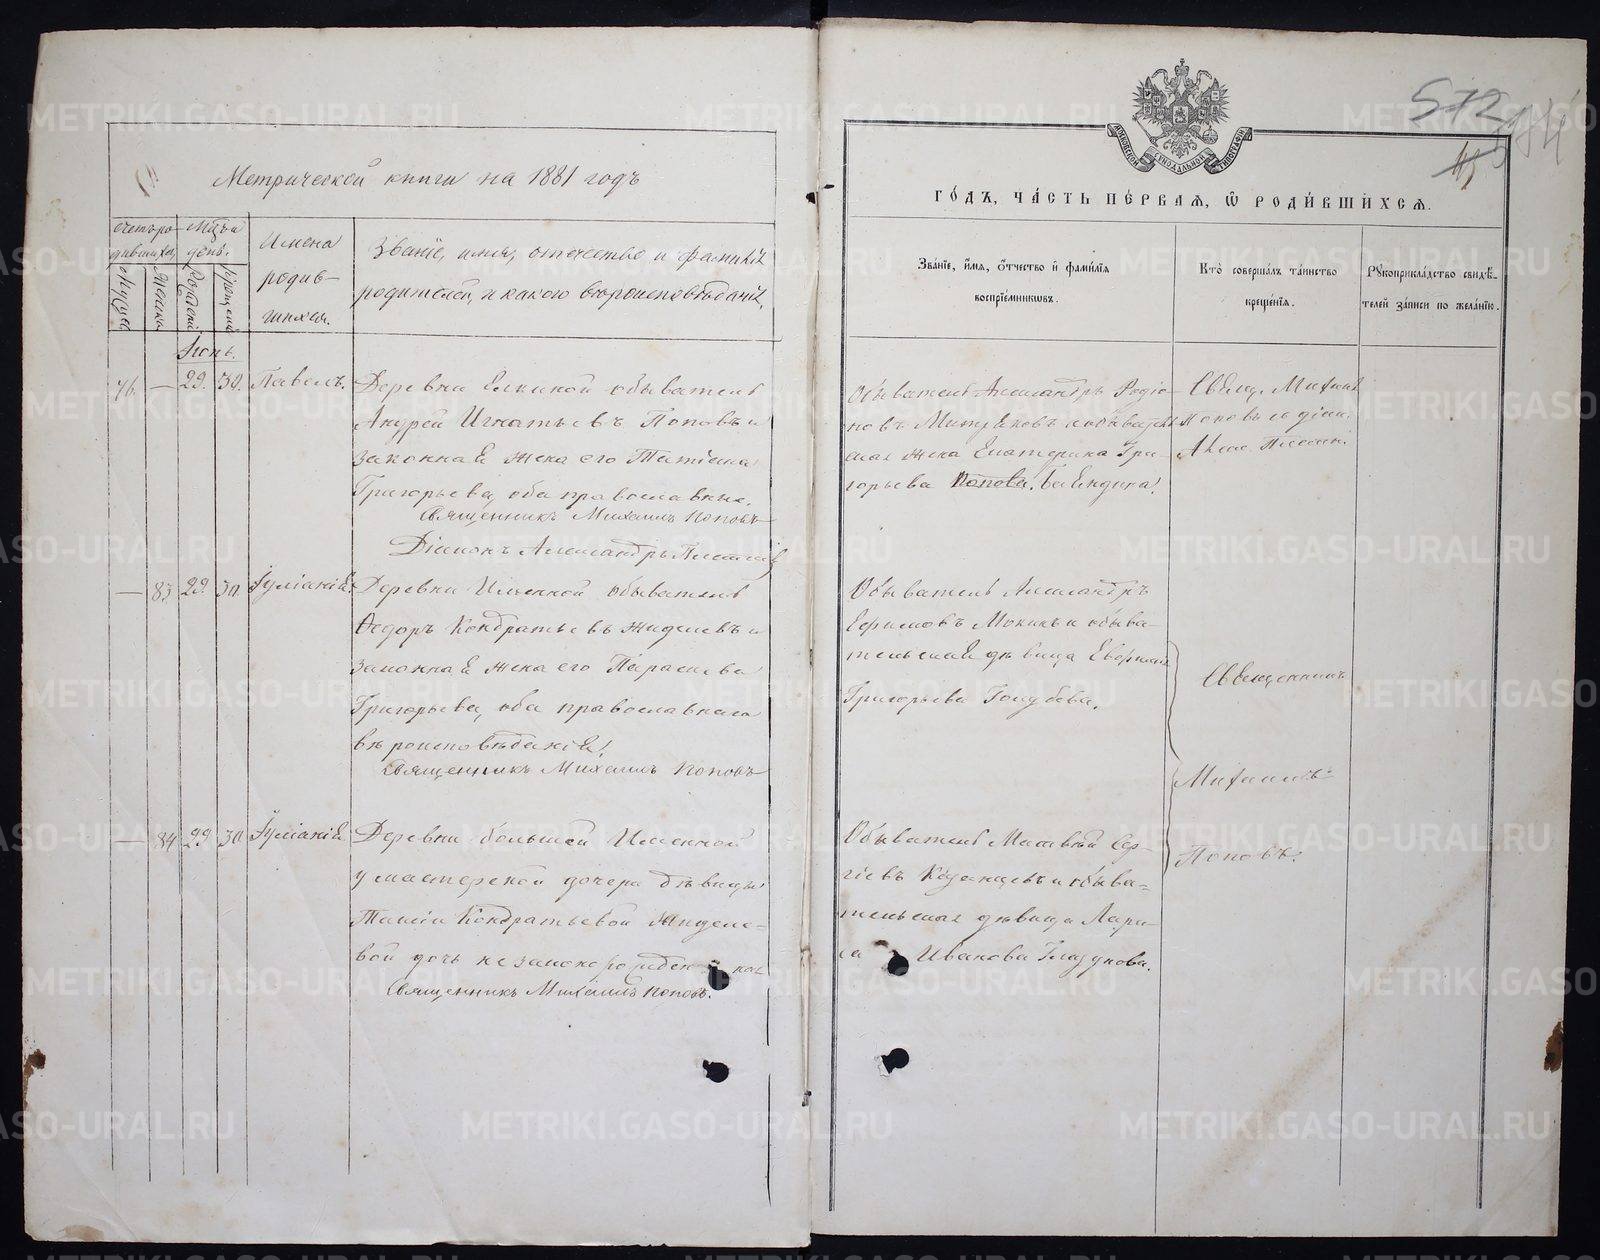 Метрической книги на 1881 годъ
Счетъ родившихся
Мѣц. и день.
Имена родившихся.
Званіе, имя, отчество и фамилія
родителей, и какого вѣроисповѣданія.
Мужеска
Женска
Рожденія
Крещенія
Іюнь.
76. — 29. 30. Павелъ.
Деревни Елкиной обыватель
Андрей Игнатьевъ Поповъ и
законная жена его Татіана
Григорьева, оба православные.
Священникъ Михаилъ Поповъ
Діаконъ Александръ
— 83 29. 30. Іуліанія
Деревни обыватель
Ѳедоръ Кондратьевъ Жиделевъ и
законная жена его Параскева
Григорьева, оба православнаго
вѣроисповѣданія.
Священникъ Михаилъ Поповъ
— 84 29 30 Іуліанія
Деревни большой
у мастерской дочери дѣвицы
Таисіи Кондратьевой Жиделе-
вой дочь незаконорожденная
Священникъ Михаилъ Поповъ.
МОСКОВСКОЙ СѴНОДАЛЬНОЙ ТИПОГРАФІИ
572
ГО́ДЪ, ЧА́СТЬ ПЕ́РВАѦ, Ѽ РОДИ́ВШИХСѦ.
Зва́нїе, и́мѧ, ѻ҆́тчество и҆ фами́лїѧ
воспрїе́мникѡвъ.
Кто̀ соверша́лъ та́инство
креще́нїѧ.
Рꙋкоприкла́дство свидѣ́-
телей за́писи по жела́нїю.
Обыватель Александръ Родіо-
новъ Митряковъ и обыватель-
ская жена Екатерина Гри-
горьева Попова.
Свящ. Михаилъ
Поповъ съ діак.
Алек.
Обыватель Александръ
Ефимовъ Мокинъ и обыва-
тельская дѣвица
Григорьева Голубева.
Священникъ
Михаилъ
Поповъ.
Обыватель Матвѣй Сер-
гіевъ Казанцевъ и обыва-
тельская дѣвица Лари-
са Иванова Глазунова.
METRIKI.GASO-URAL.RU